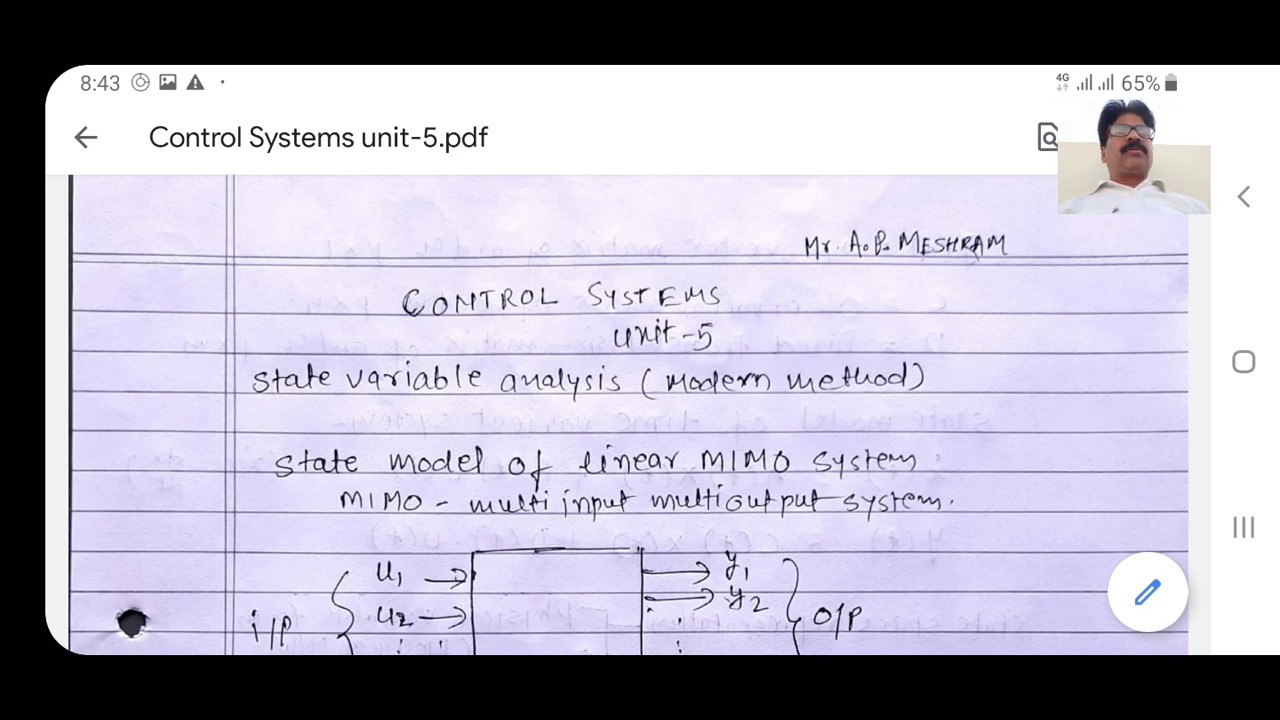 8:43
4G 65%
Control Systems unit-5.pdf
Mr. A.P. MESHRAM
CONTROL SYSTEMS
Unit-5
State variable analysis (Modern method)
State model of linear MIMO system
MIMO - multi input multioutput system.
u1 y1
u2 y2
i/p O/P